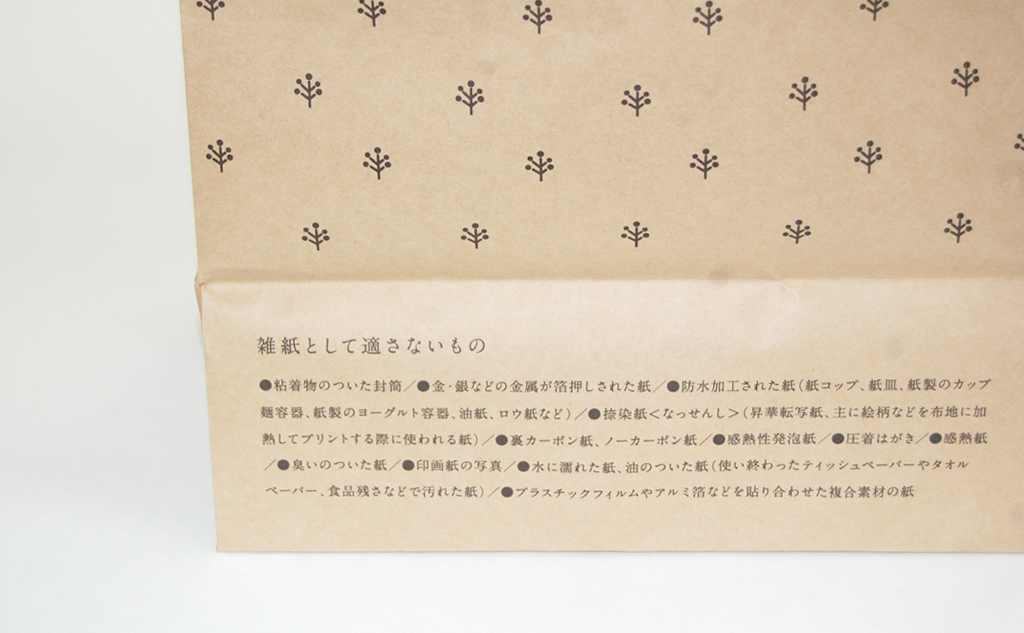 雑紙として適さないもの
●粘着物のついた封筒／●金・銀などの金属が箔押しされた紙／●防水加工された紙（紙コップ、紙皿、紙製のカップ
麺容器、紙製のヨーグルト容器、油紙、ロウ紙など）／●捺染紙＜なっせんし＞（昇華転写紙、主に絵柄などを布地に加
熱してプリントする際に使われる紙）／●裏カーボン紙、ノーカーボン紙／●感熱性発泡紙／●圧着はがき／●感熱紙
／●臭いのついた紙／●印画紙の写真／●水に濡れた紙、油のついた紙（使い終わったティッシュペーパーやタオル
ペーパー、食品残さなどで汚れた紙）／●プラスチックフィルムやアルミ箔などを貼り合わせた複合素材の紙